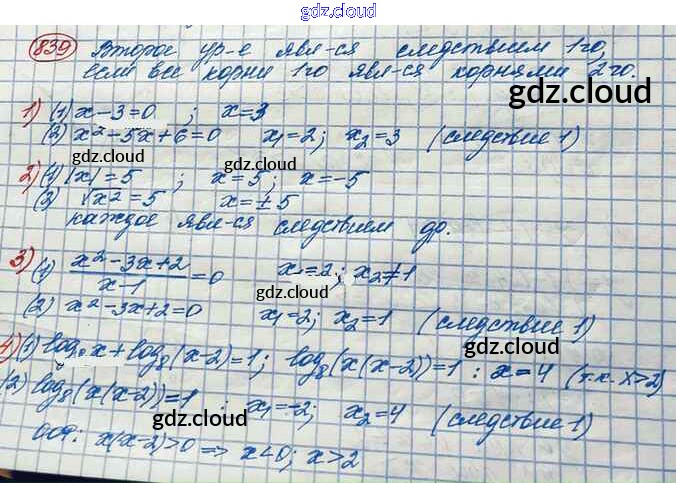 gdz.cloud
839 Второе ур-е явл-ся следствием 1го,
если все корни 1го явл-ся корнями 2го.
gdz.cloud
1) (1) x-3=0 ; x=3
(2) x²-5x+6=0 x₁=2; x₂=3 (следствие 1)
gdz.cloud
gdz.cloud
2) (1) |x|=5 ; x=5; x=-5
(2) √x²=5 x=±5
каждое явл-ся следствием др.
3) (1) x²-3x+2/x-1=0 x₁=2; x₂≠1
gdz.cloud
(2) x²-3x+2=0 x₁=2; x₂=1 (следствие 1)
gdz.cloud
4) (1) log₈x+log₈(x-2)=1; log₈(x(x-2))=1 : x=4 (т.к. x>2)
(2) log₈(x(x-2))=1 : x₁=-2; x₂=4 (следствие 1)
gdz.cloud
ООФ: x(x-2)>0 => x<0; x>2
gdz.cloud